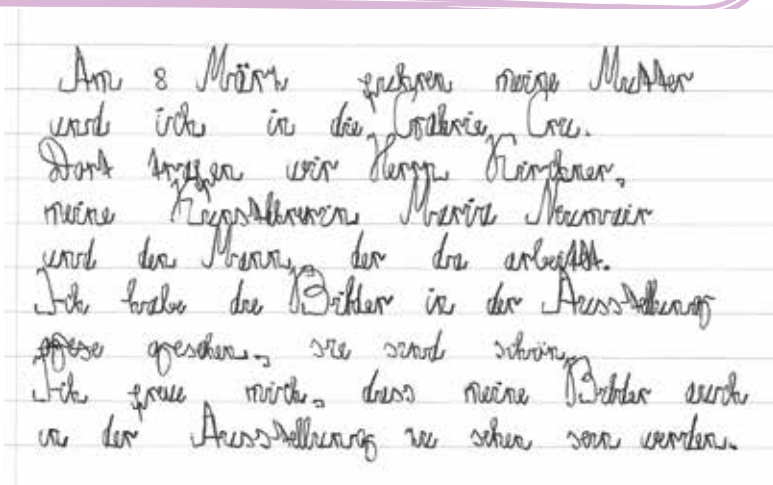 Am 8 März fuhren meine Mutter
und ich in die Galerie Cru.
Dort trafen wir Herrn Kirchner,
meine Kunstlehrerin Maria Neumair
und den Mann, der da arbeitet.
Ich habe die Bilder in der Ausstellung
gesehen, sie sind schön.
Ich freue mich, dass meine Bilder auch
in der Ausstellung zu sehen sein werden.